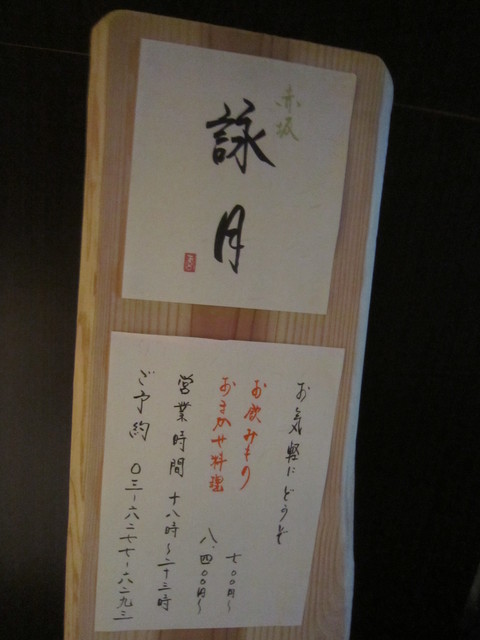 赤坂
詠月
お気軽にどうぞ
お飲みもの 七〇〇円〜
おまかせ料理 八、四〇〇円〜
営業時間 十八時〜二十三時
ご予約 〇三一六二七七一六二九三